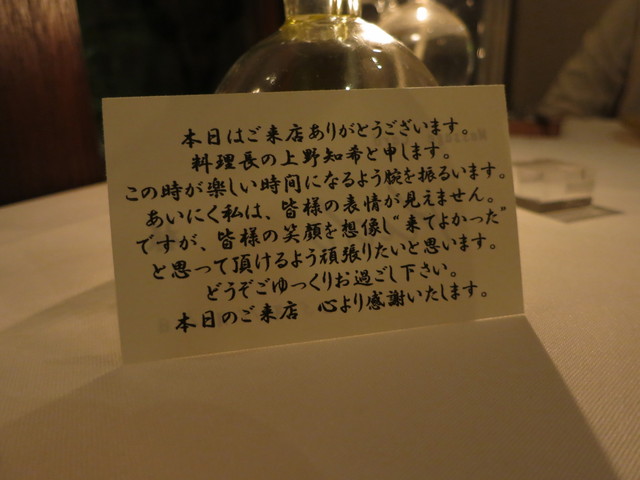 本日はご来店ありがとうございます。
料理長の上野知希と申します。
この時が楽しい時間になるよう腕を振るいます。
あいにく私は、皆様の表情が見えません。
ですが、皆様の笑顔を想像し“来てよかった”
と思って頂けるよう頑張りたいと思います。
どうぞごゆっくりお過ごし下さい。
本日のご来店　心より感謝いたします。